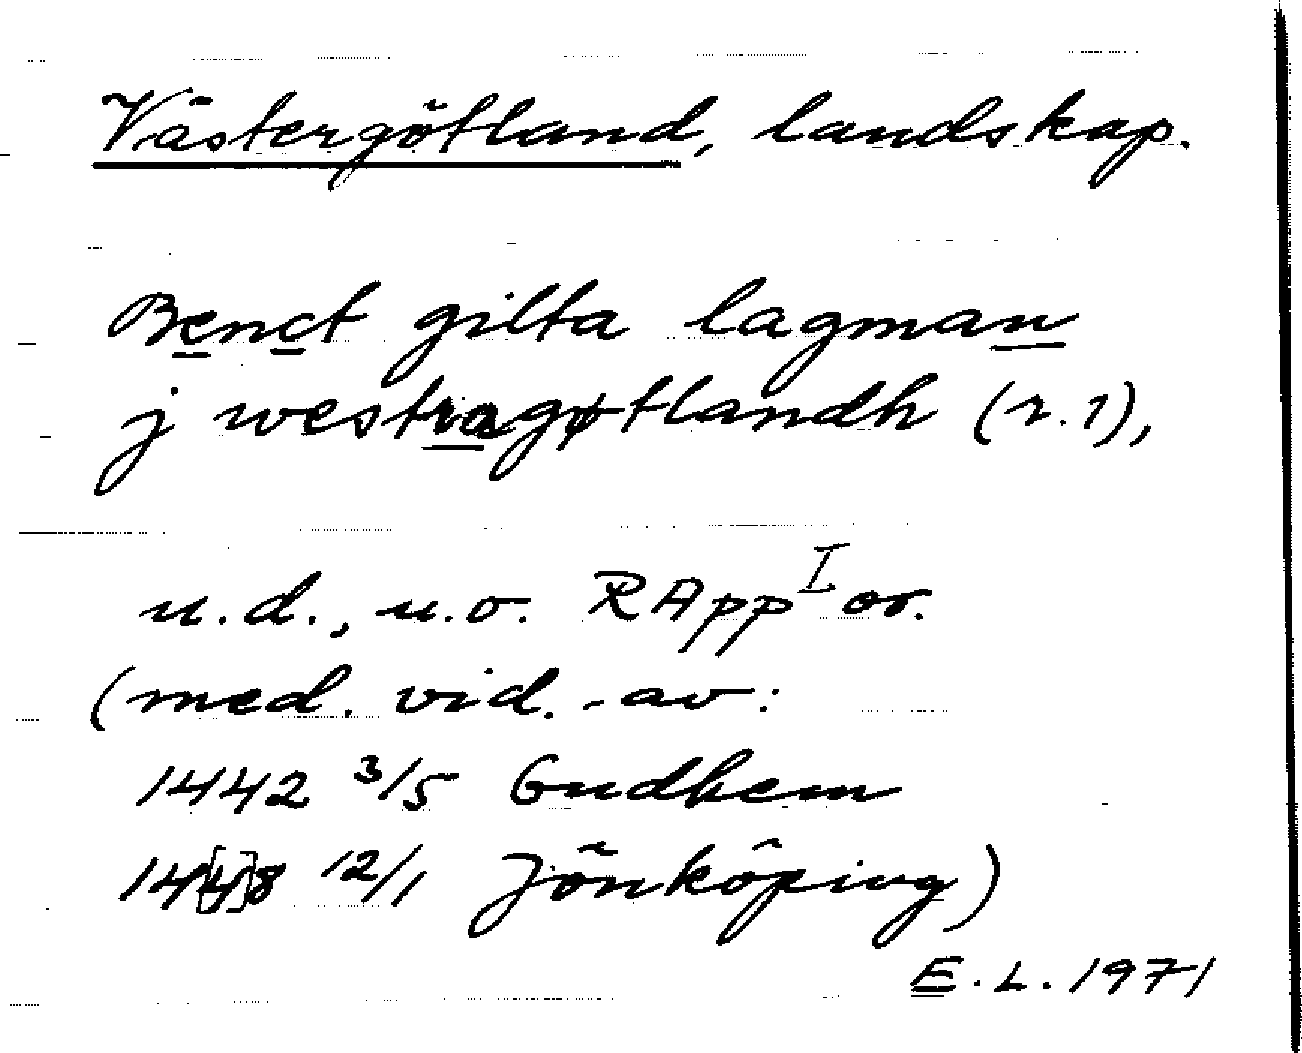 Västergötland, landskap.
Benct gilta lagman
j westragøtlandh (r. 1),
u.d., u.o. RApp I or.
(med. vid. av:
1442 3/5 Gudhem
14[4]8 12/1 Jönköping)
E.L. 1971